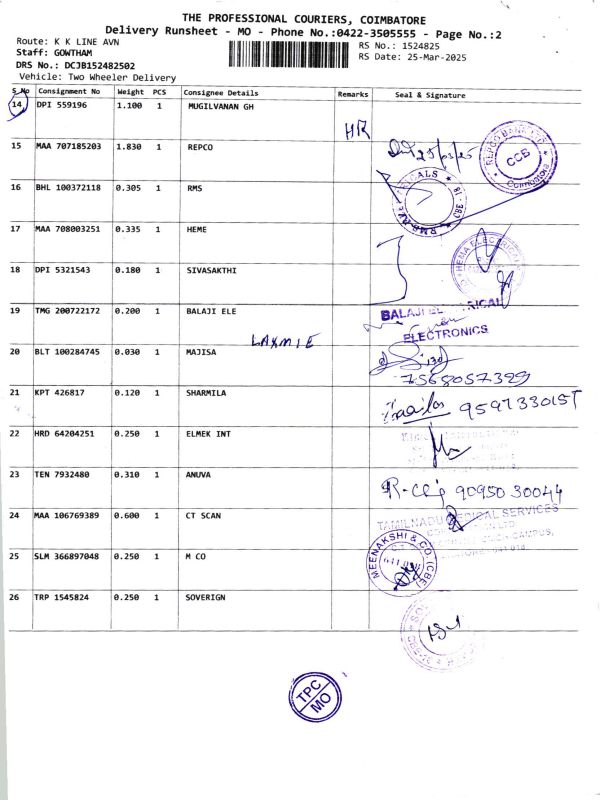 THE PROFESSIONAL COURIERS, COIMBATORE
Delivery Runsheet - MO - Phone No.:0422-3505555 - Page No.:2
Route: K K LINE AVN
RS No.: 1524825
Staff: GOWTHAM
RS Date: 25-Mar-2025
DRS No.: DCJB152482502
Vehicle: Two Wheeler Delivery
S No Consignment No Weight PCS Consignee Details Remarks Seal & Signature
14 DPI 559196 1.100 1 MUGILVANAN GH
HR
15 MAA 707185203 1.830 1 REPCO
25/03/25
REPCO BANK LTD
CCB
Coimbatore
16 BHL 100372118 0.305 1 RMS
17 MAA 708003251 0.335 1 HEME
HEMA ELECTRICAL
18 DPI 5321543 0.180 1 SIVASAKTHI
19 TMG 200722172 0.200 1 BALAJI ELE
BALAJI ELECTRICAL
ELECTRONICS
LAXMIE
20 BLT 100284745 0.030 1 MAJISA
7568057389
21 KPT 426817 0.120 1 SHARMILA
22 HRD 64204251 0.250 1 ELMEK INT
23 TEN 7932480 0.310 1 ANUVA
90950 30044
24 MAA 106769389 0.600 1 CT SCAN
TAMILNADU MEDICAL SERVICES
25 SLM 366897048 0.250 1 M CO
MEENAKSHI & CO. (CBE)
26 TRP 1545824 0.250 1 SOVERIGN
TPC
MO